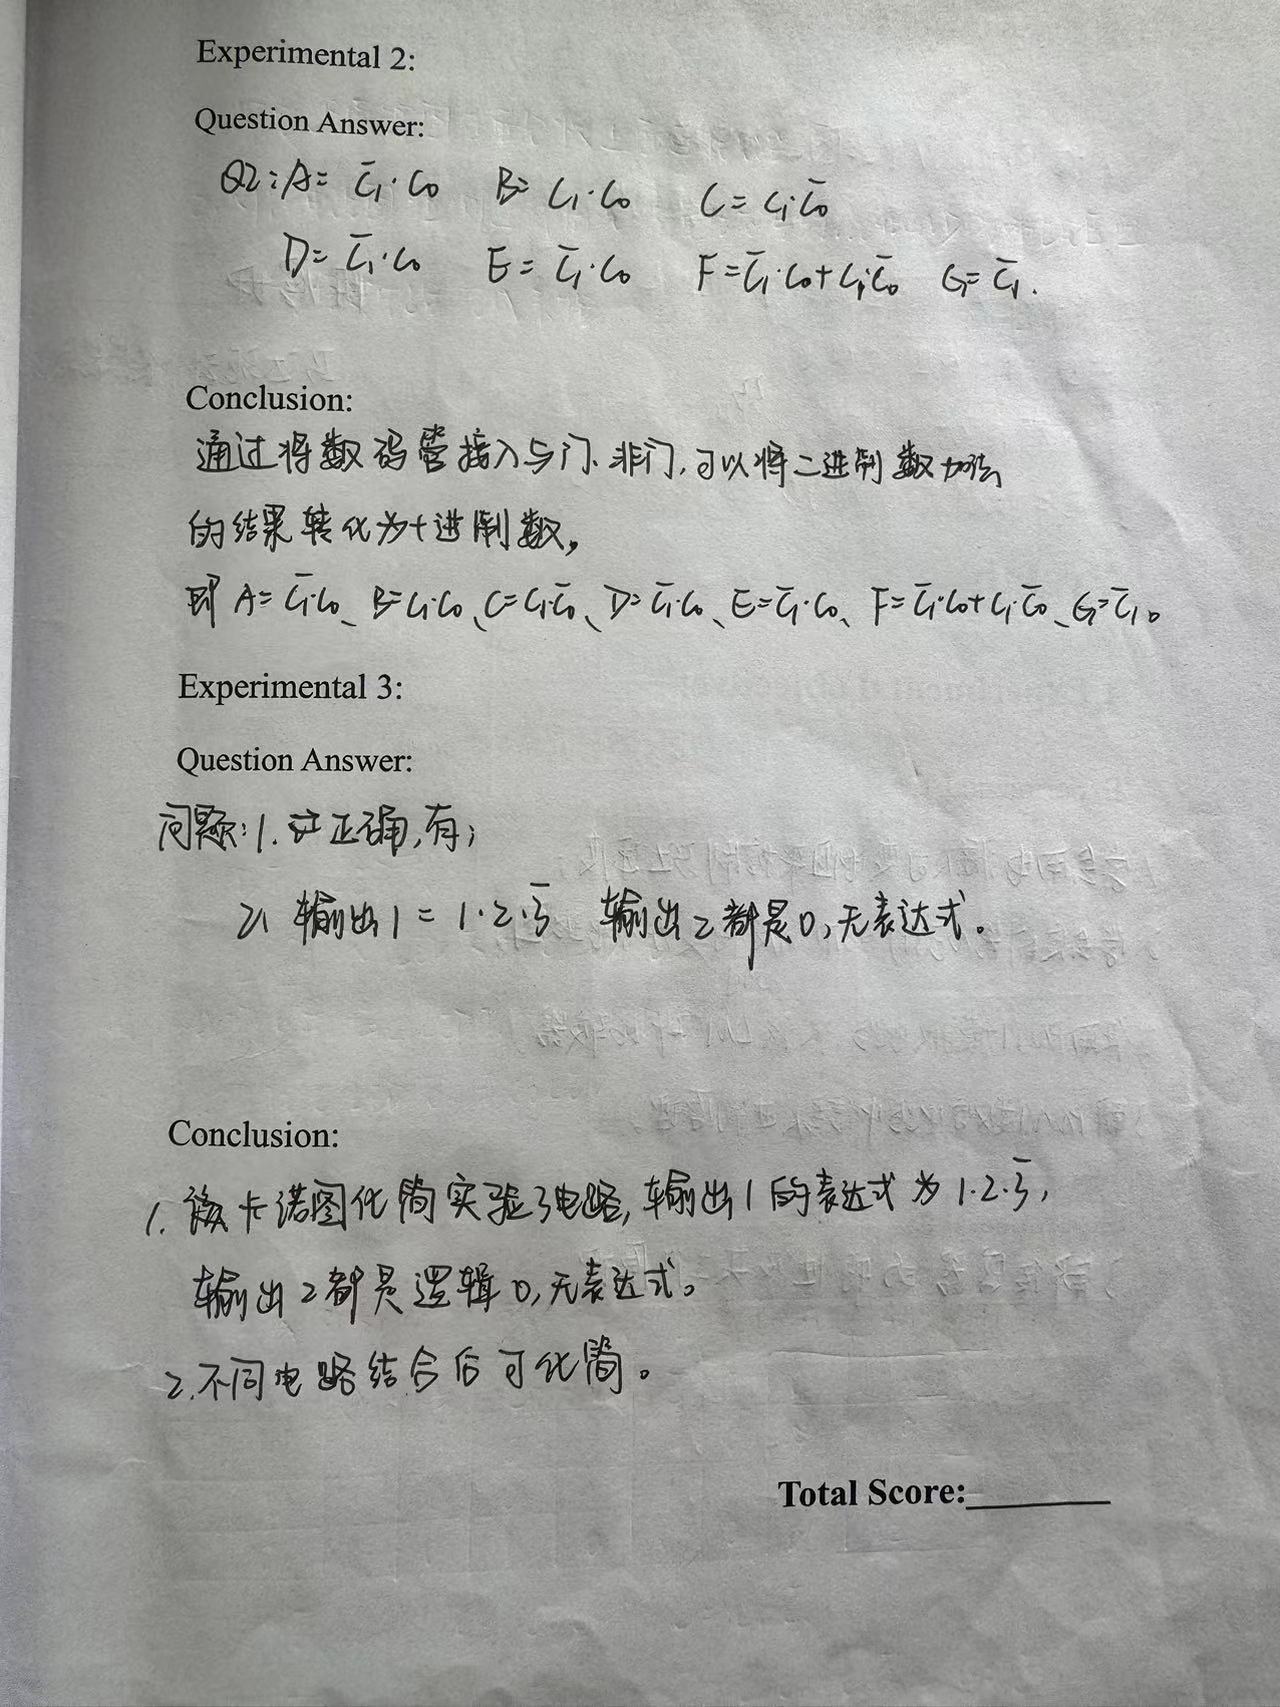 Experimental 2:
Question Answer:
Q2: A= C̄₁·C₀ B= C₁·C₀ C= C₁·C̄₀
D= C̄₁·C₀ E= C̄₁·C₀ F= C̄₁·C₀+C₁·C̄₀ G= C̄₁.
Conclusion:
通过将数码管接入与门、非门,可以将二进制数加法
的结果转化为十进制数,
即 A= C̄₁·C₀、B=C₁·C₀、C=C₁·C̄₀、D=C̄₁·C₀、E=C̄₁·C₀、F=C̄₁·C₀+C₁·C̄₀、G=C̄₁。
Experimental 3:
Question Answer:
问题:1. 正确,有;
2. 输出1 = 1·2·3̄ 输出2都是0,无表达式。
Conclusion:
1. 卡诺图化简实验3电路,输出1的表达式为1·2·3̄,
输出2都是逻辑0,无表达式。
2.不同电路结合后可化简。
Total Score: